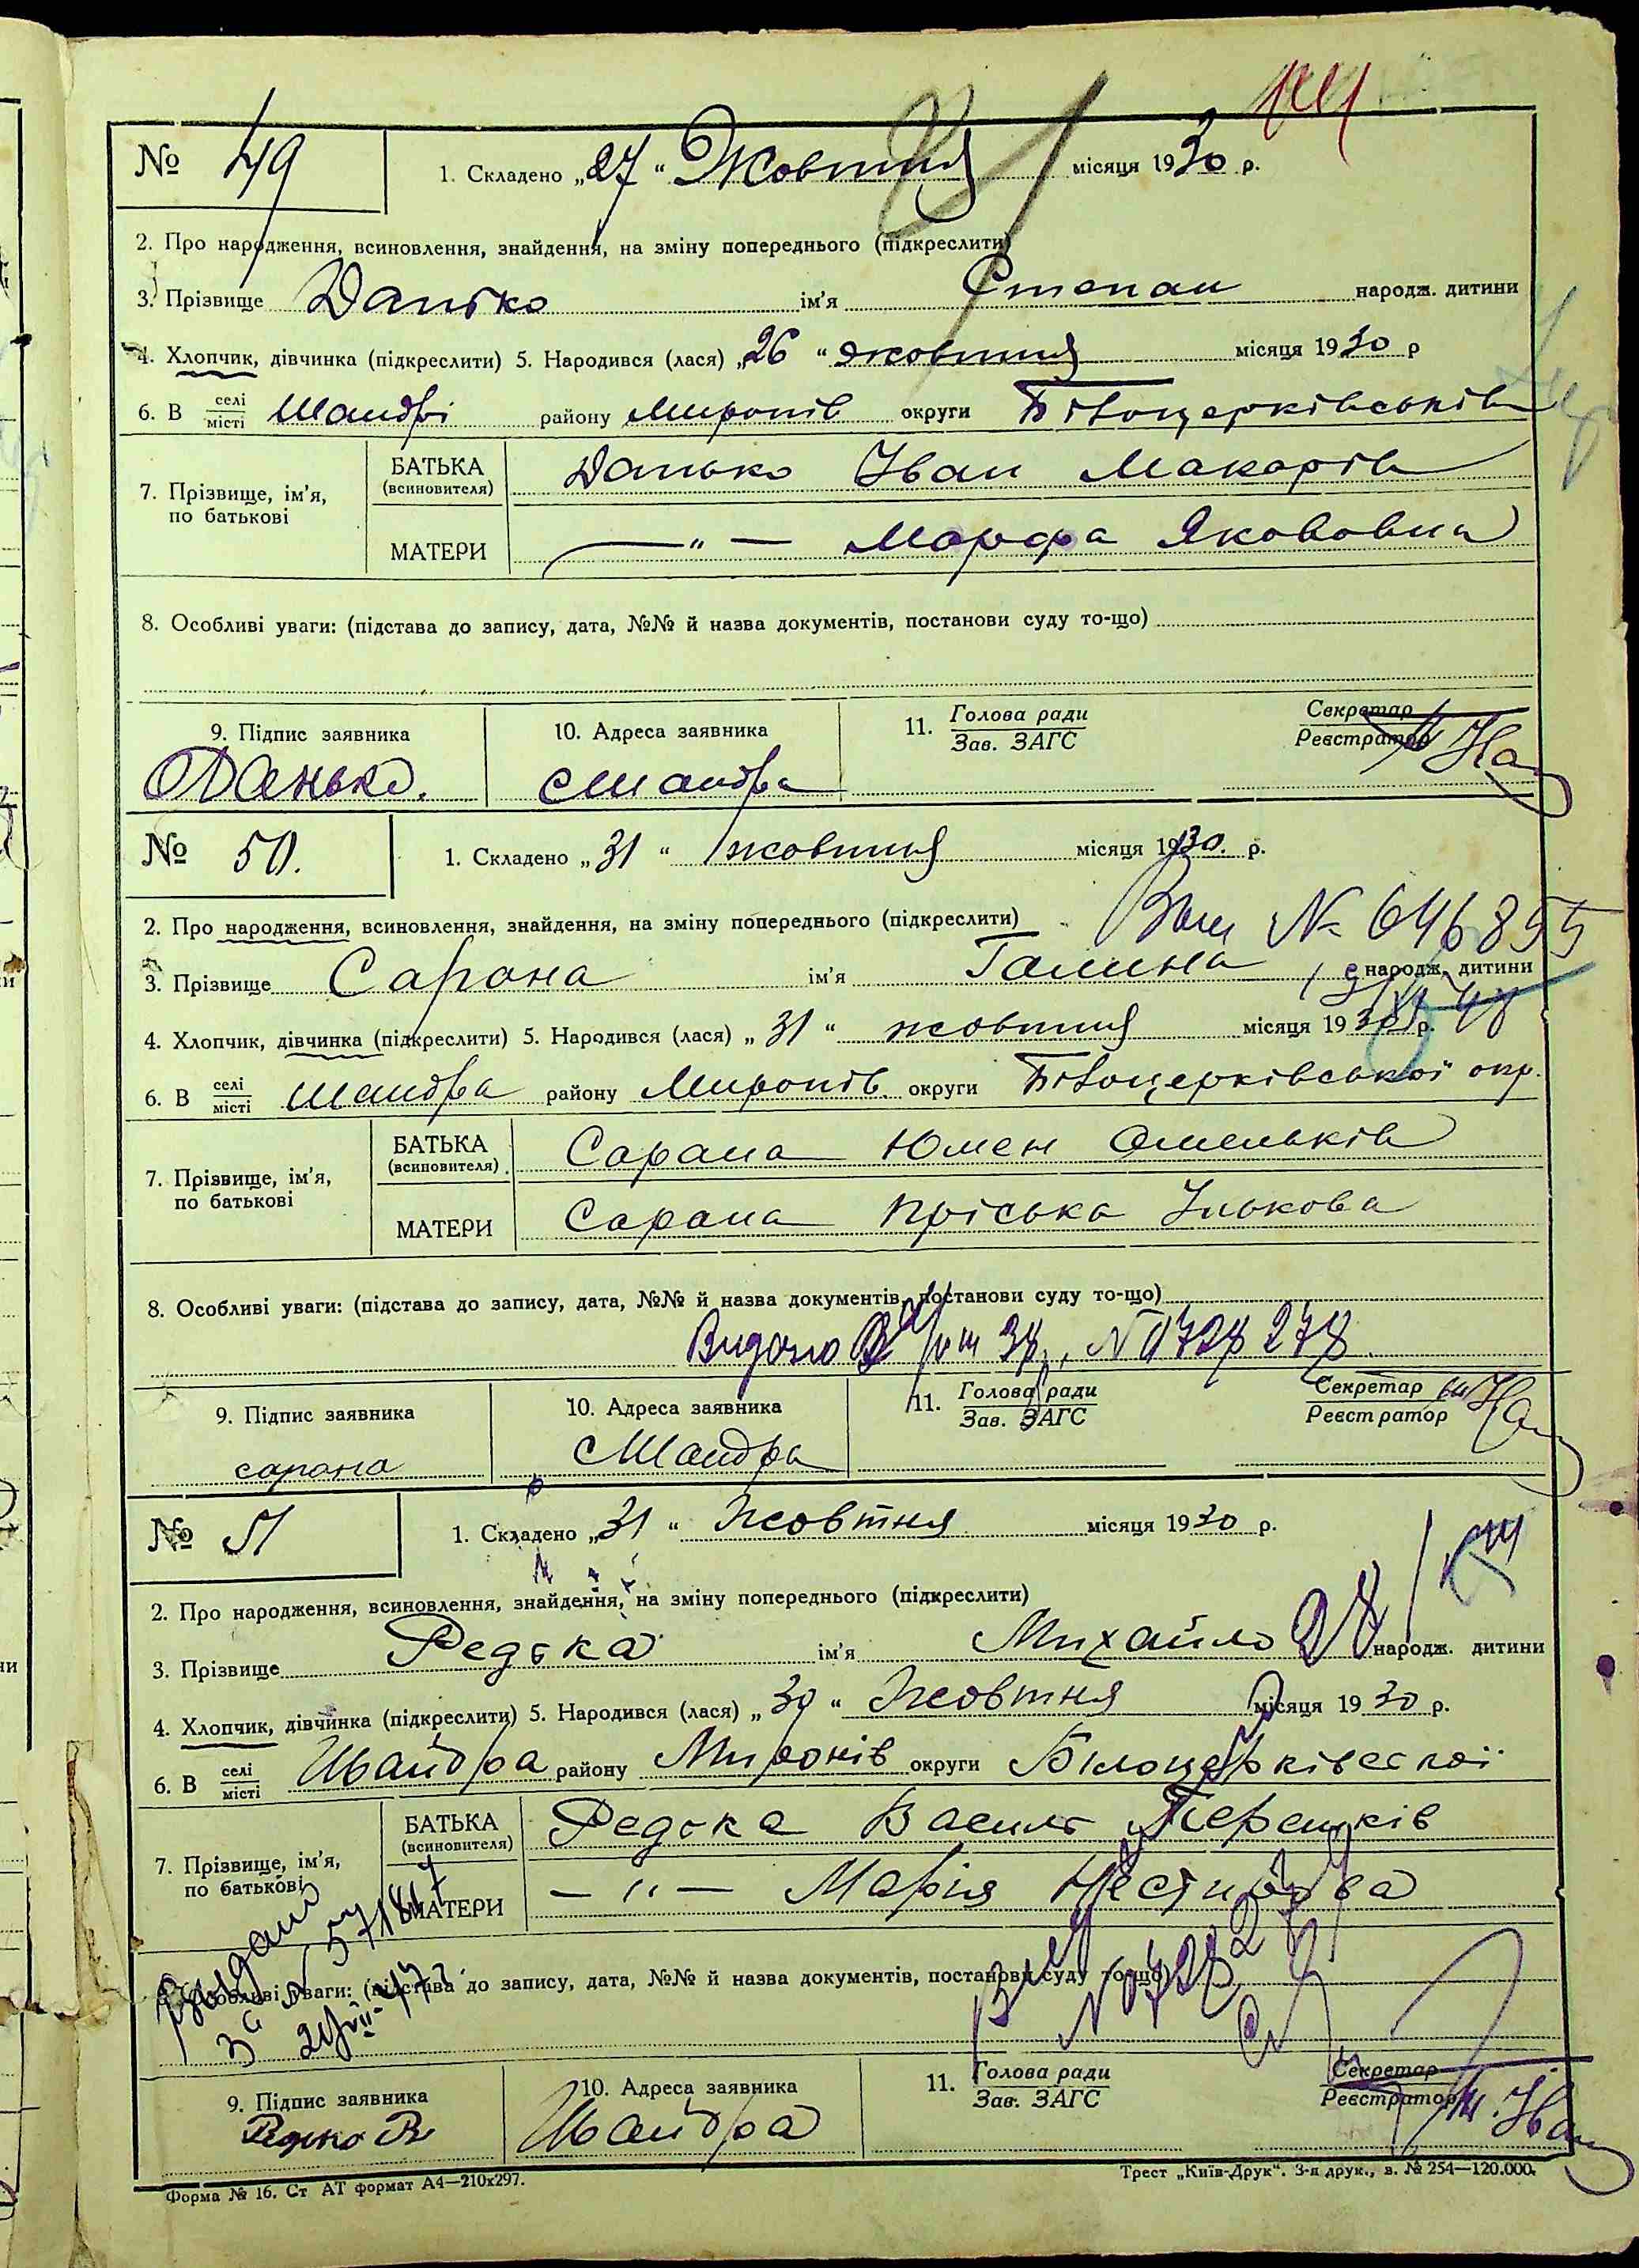 № 49
1. Складено „27“ Жовтня місяця 1930 р.
2. Про народження, всиновлення, знайдення, на зміну попереднього (підкреслити)
3. Прізвище Данько ім'я Степан народж. дитини
4. Хлопчик, дівчинка (підкреслити) 5. Народився (лася) „26“ жовтня місяця 1930 р
6. В селі місті Шандрі району Миронів округи Білоцерківськів
7. Прізвище, ім'я, по батькові
БАТЬКА (всиновителя) Данько Іван Макарів
МАТЕРИ — „ — Марфа Якововна
8. Особливі уваги: (підстава до запису, дата, №№ й назва документів, постанови суду то-що)
9. Підпис заявника 10. Адреса заявника 11. Голова ради Зав. ЗАГС Секретар Реєстратор
Данько. с Шандра
№ 50.
1. Складено „31“ жовтня місяця 1930. р.
2. Про народження, всиновлення, знайдення, на зміну попереднього (підкреслити)
№ 646855
3. Прізвище Сарана ім'я Галина народж. дитини
4. Хлопчик, дівчинка (підкреслити) 5. Народився (лася) „31“ жовтня місяця 1930 р.
6. В селі місті Шандра району Миронів. округи Білоцерківської окр.
7. Прізвище, ім'я, по батькові
БАТЬКА (всиновителя) Сарана Юмен Омельків
МАТЕРИ Сарана Пріська Ількова
8. Особливі уваги: (підстава до запису, дата, №№ й назва документів, постанови суду то-що)
Видано
9. Підпис заявника 10. Адреса заявника 11. Голова ради Зав. ЗАГС Секретар Реєстратор
сарана с Шандра
№ 51
1. Складено „31“ Жовтня місяця 1930 р.
2. Про народження, всиновлення, знайдення, на зміну попереднього (підкреслити)
3. Прізвище Редька ім'я Михайло народж. дитини
4. Хлопчик, дівчинка (підкреслити) 5. Народився (лася) „30“ Жовтня місяця 1930 р.
6. В селі місті Шандра району Миронів округи Білоцерківської
7. Прізвище, ім'я, по батькові
БАТЬКА (всиновителя) Редька Василь Терешків
МАТЕРИ — „ — Марія
8. Особливі уваги: (підстава до запису, дата, №№ й назва документів, постанови суду то-що)
9. Підпис заявника 10. Адреса заявника 11. Голова ради Зав. ЗАГС Секретар Реєстратор
Шандра
Форма № 16. Ст АТ формат А4—210х297.
Трест „Київ-Друк“. 3-я друк., з. № 254—120.000.